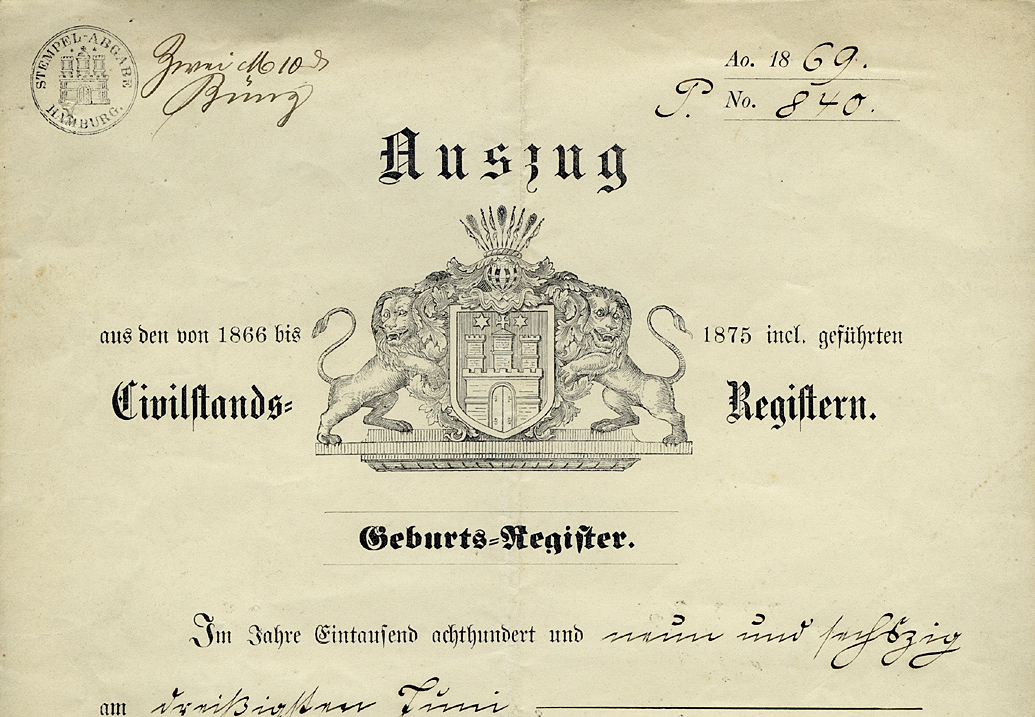 STEMPEL-ABGABE
HAMBURG.
Zwei M 10
Ao. 1869.
P. No. 840.
Auszug
aus den von 1866 bis 1875 incl. geführten
Civilstands- Registern.
Geburts-Register.
Im Jahre Eintausend achthundert und neun und sechszig
am dreißigsten Juni